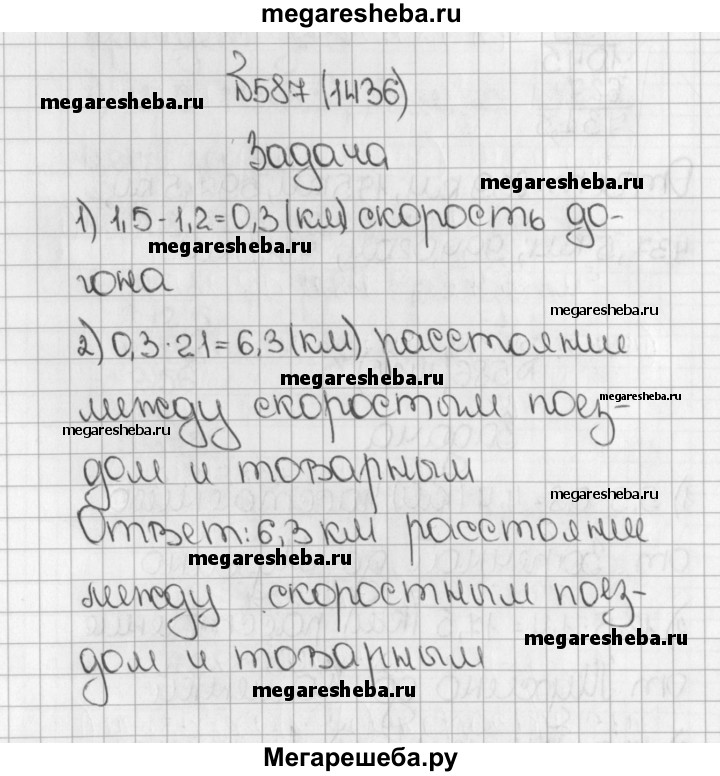 megaresheba.ru
№587 (1436)
megaresheba.ru
Задача
megaresheba.ru
1) 1,5-1,2=0,3(км) скорость до-
megaresheba.ru
гона
megaresheba.ru
2) 0,3·21=6,3(км) расстояние
megaresheba.ru
между скоростым поез-
megaresheba.ru
megaresheba.ru
дом и товарным
megaresheba.ru
Ответ: 6,3 км расстояние
megaresheba.ru
между скоростным поез-
megaresheba.ru
дом и товарным
megaresheba.ru
Мегарешеба.ру